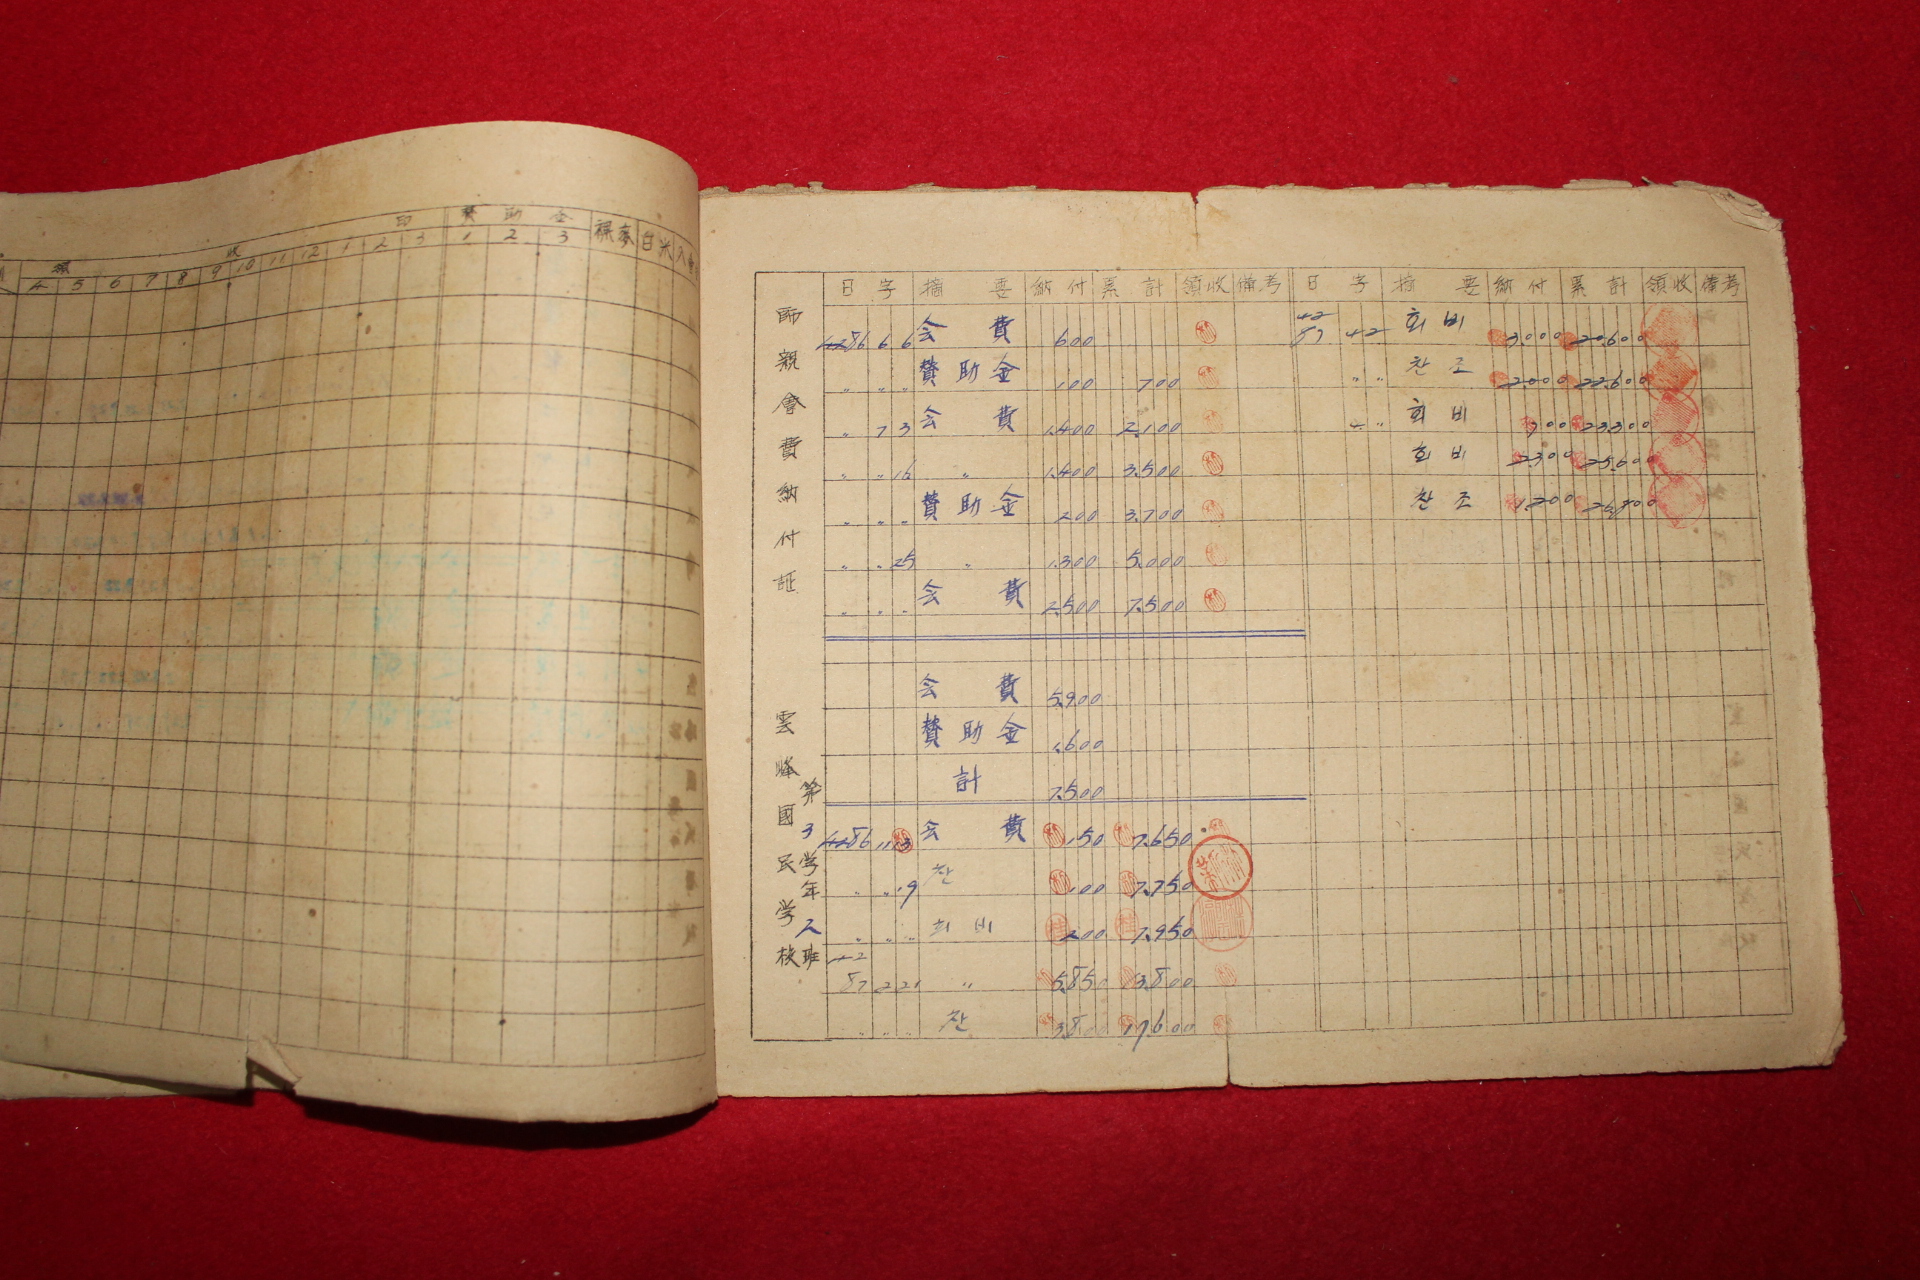 印 賛助金
領 收
4 5 6 7 8 9 10 11 12 1 2 3 1 2 3 裸麥 白米
師親會費納付証
雲峰國民学校
第3学年2班
日字 摘要 納付 累計 領收 備考 日字 摘要 納付 累計 領收 備考
4286 6 6 会費 600
〃 〃 〃 賛助金 100 700
〃 7 3 会費 1,400 2,100
〃 〃 16 〃 1,400 3,500
〃 〃 〃 賛助金 200 3,700
〃 〃 25 〃 1,300 5,000
〃 〃 〃 会費 2,500 7,500
会費 5,900
賛助金 1,600
計 7,500
4286 11 3 会費 150 7,650
〃 〃 19 찬 100 7,750
〃 〃 〃 회비 200 7,950
4287 2 21 〃 5,850 13,800
〃 〃 〃 찬 3,800 17,600
4287 4 2 회비 3,000 20,600
〃 〃 찬조 2,000 22,600
〃 〃 회비 700 23,300
회비 2,300 25,600
찬조 1,200 26,800